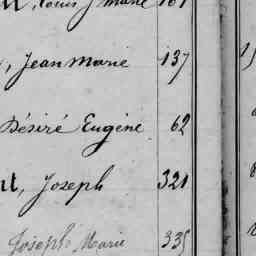 Louis J Marie 161
, Jean Marie 137
Désiré Eugène 62
nt, Joseph 321
Joseph Marie 335